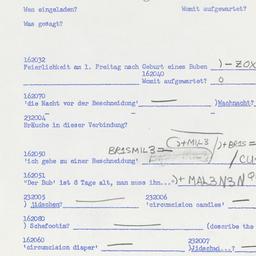 Wen eingeladen? Womit aufgewartet?
Was gesagt?
162032
Feierlichkeit am 1. Freitag nach Geburt eines Buben )-ZOX
162040
Womit aufgewartet? O
162070
'die Nacht vor der Beschneidung' )Wachnacht?
232004
Bräuche in dieser Verbindung?
162050
'ich gehe zu einer Beschneidung' BR1SMIL3= ()+MIL3 )+BR1S= /CU
162051
"Der Bub' ist 8 Tage alt, man muss ihm...)+ MAL3N3N
232005 232006
) jidschen? 'circumcision candles'
162080
) Schafootim? (describe the
162060 232007
'circumcision diaper' )jidschwi..?